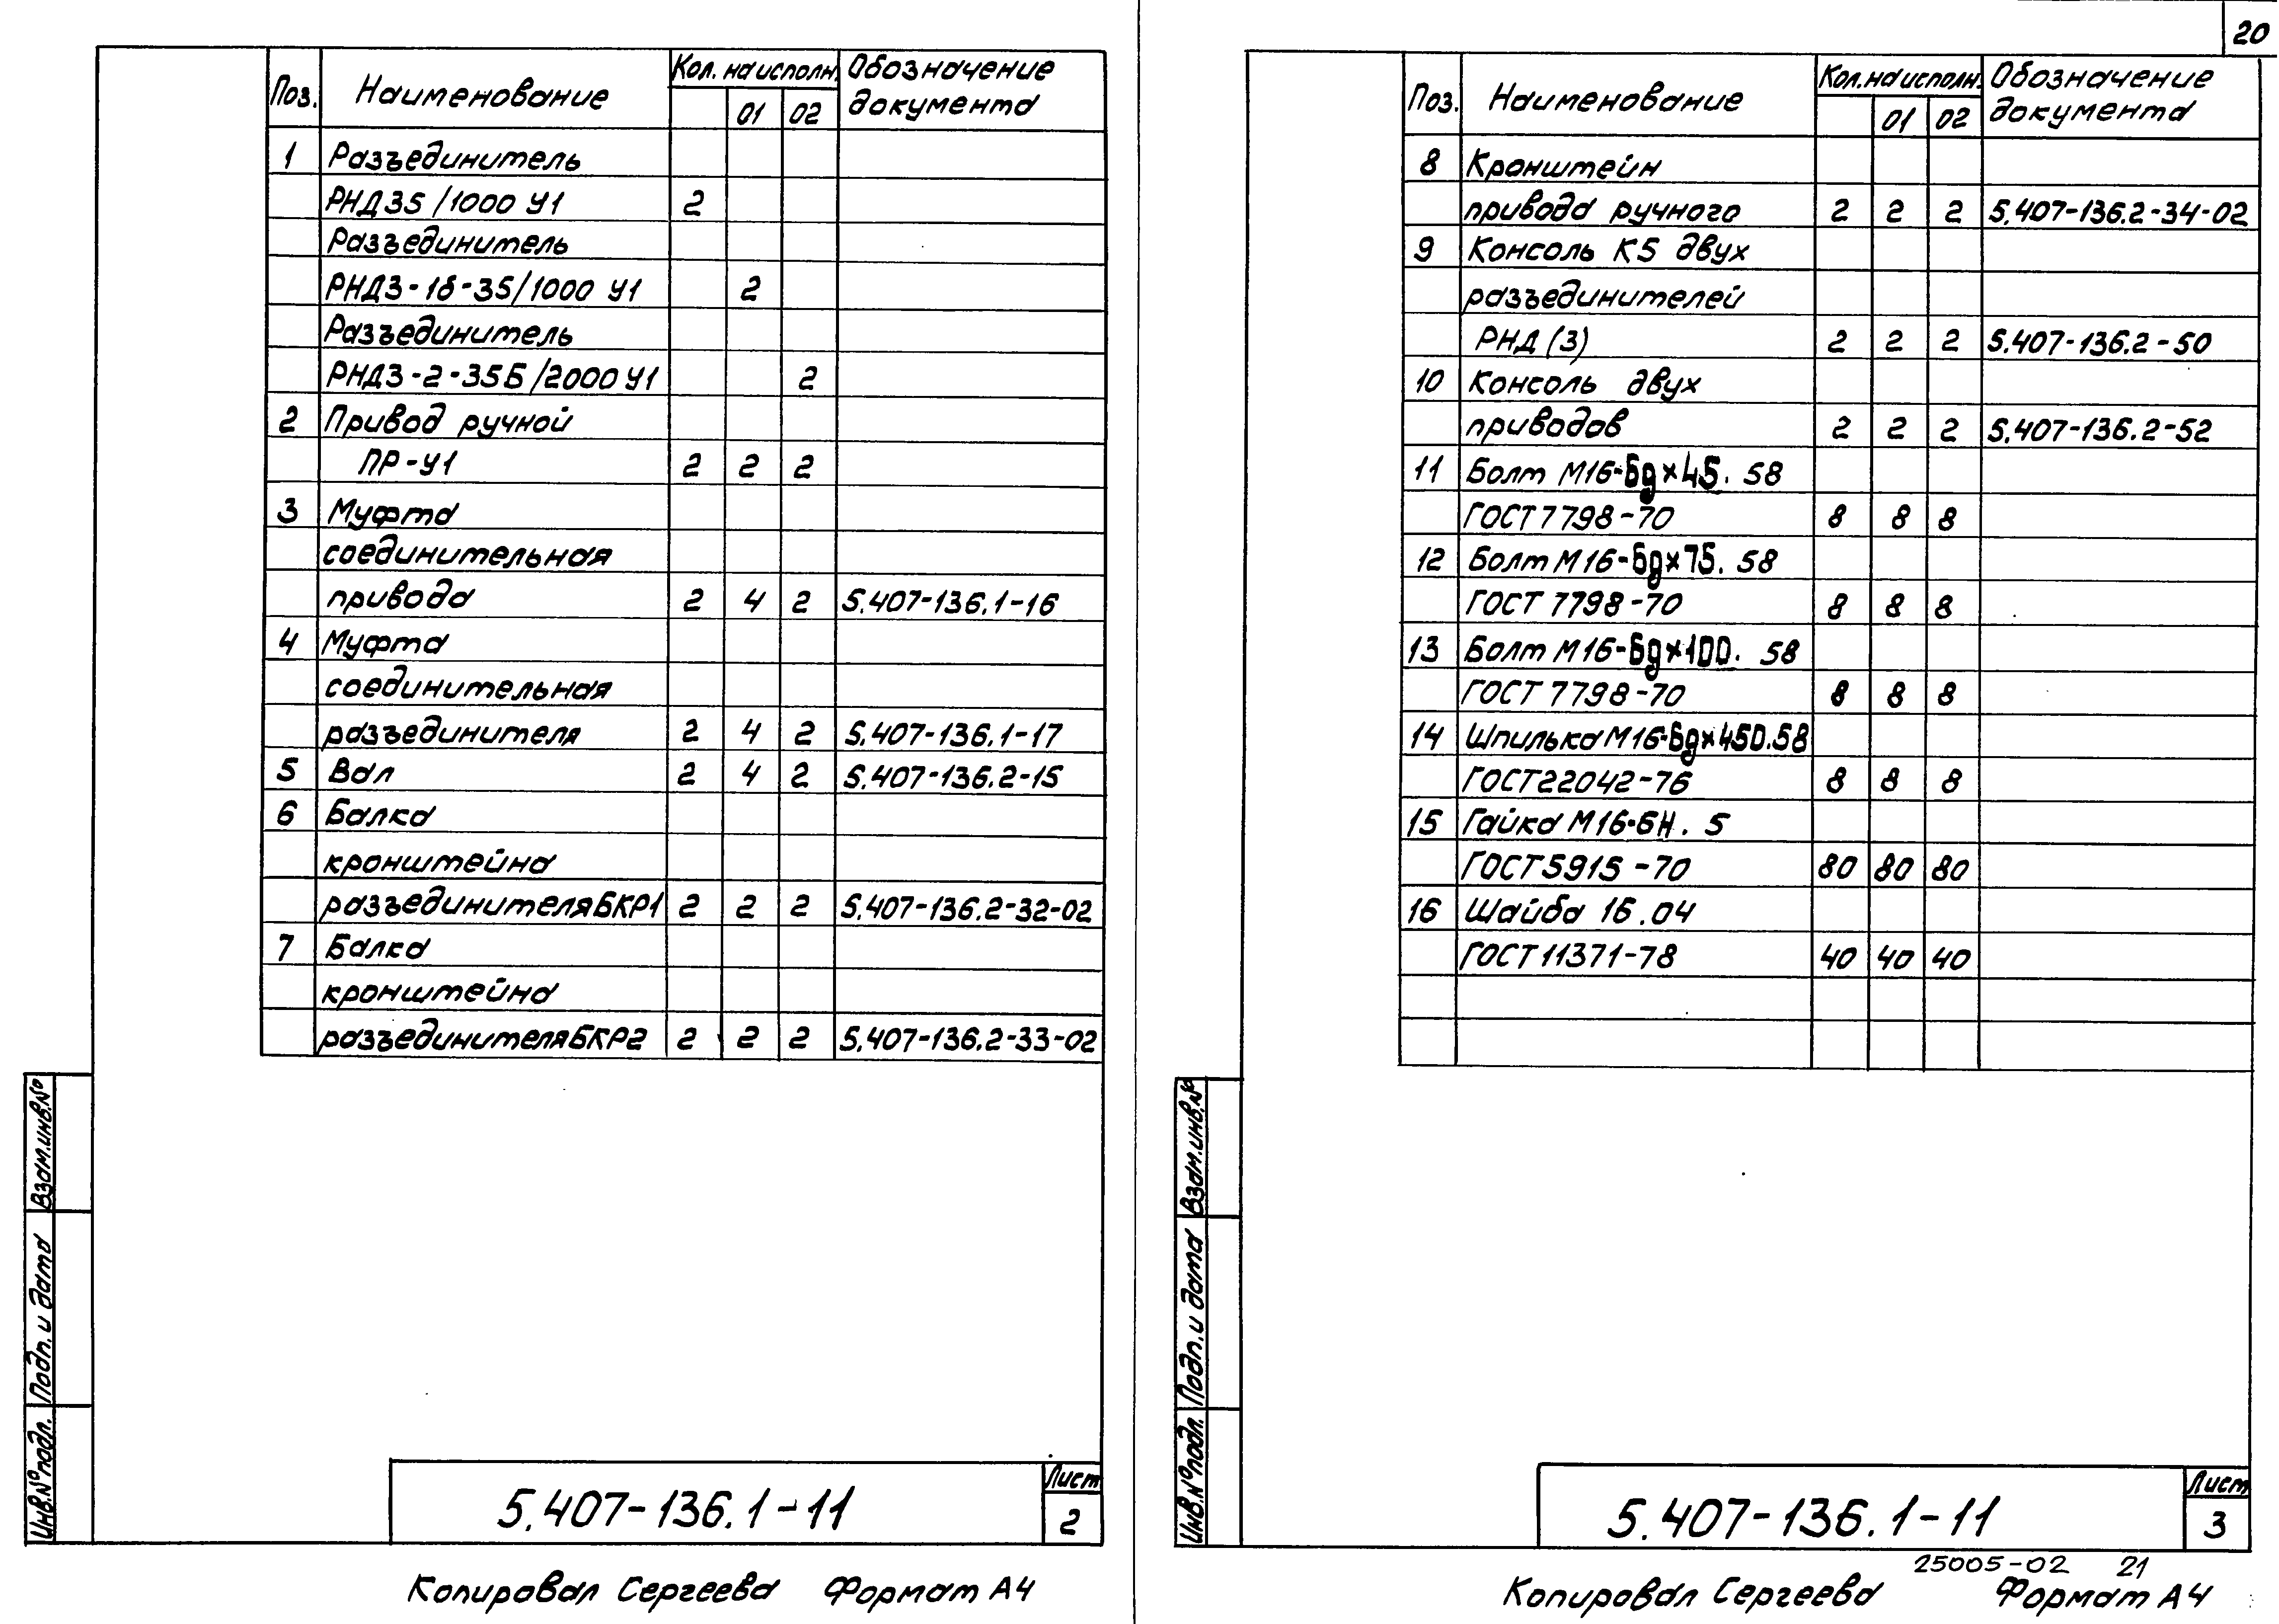 Поз. Наименование Кол. на исполн. Обозначение документа
01 02
1 Разъединитель
РНД35/1000 У1 2
Разъединитель
РНДЗ-1б-35/1000 У1 2
Разъединитель
РНДЗ-2-35Б/2000 У1 2
2 Привод ручной
ПР-У1 2 2 2
3 Муфта
соединительная
привода 2 4 2 5.407-136.1-16
4 Муфта
соединительная
разъединителя 2 4 2 5.407-136.1-17
5 Вал 2 4 2 5.407-136.2-15
6 Балка
кронштейна
разъединителя БКР1 2 2 2 5.407-136.2-32-02
7 Балка
кронштейна
разъединителя БКР2 2 2 2 5.407-136.2-33-02
Взам.инв.№
Подп. и дата
Инв.№подл.
5.407-136.1-11
Лист
2
Копировал Сергеева Формат А4
20
Поз. Наименование Кол. на исполн. Обозначение документа
01 02
8 Кронштейн
привода ручного 2 2 2 5.407-136.2-34-02
9 Консоль К5 двух
разъединителей
РНД(З) 2 2 2 5.407-136.2-50
10 Консоль двух
приводов 2 2 2 5.407-136.2-52
11 Болт М16-6g×45.58
ГОСТ 7798-70 8 8 8
12 Болт М16-6g×75.58
ГОСТ 7798-70 8 8 8
13 Болт М16-6g×100.58
ГОСТ 7798-70 8 8 8
14 Шпилька М16-6g×450.58
ГОСТ 22042-76 8 8 8
15 Гайка М16-6Н.5
ГОСТ 5915-70 80 80 80
16 Шайба 16.04
ГОСТ 11371-78 40 40 40
Взам.инв.№
Подп. и дата
Инв.№подл.
5.407-136.1-11
Лист
3
25005-02 21
Копировал Сергеева Формат А4